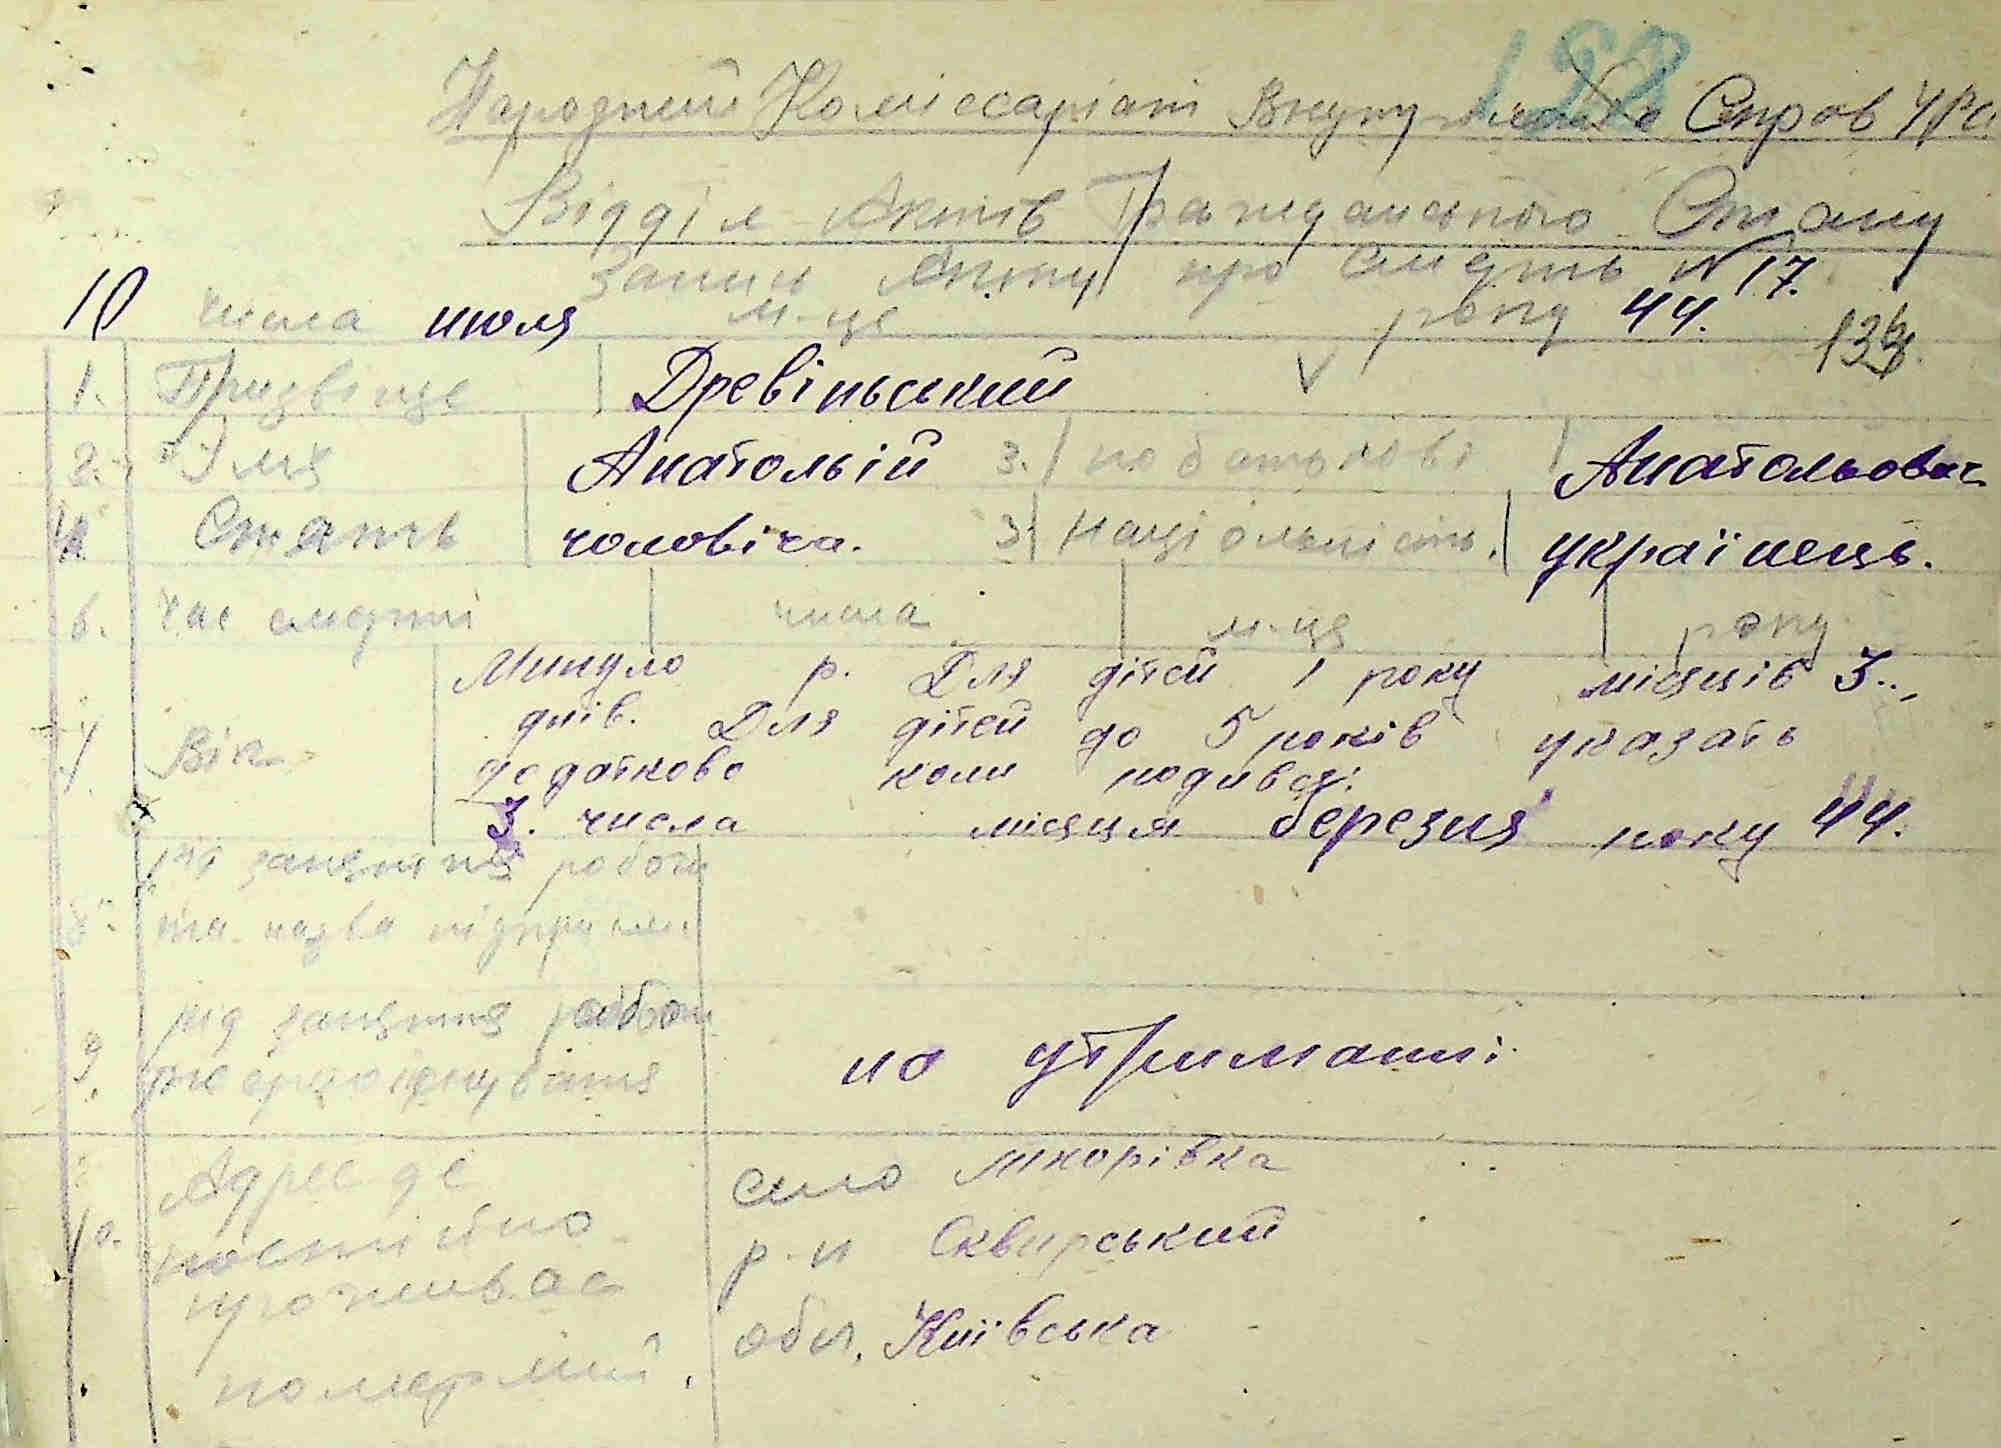 128
Народний Комісаріат Внутрішніх Справ УРС
Відділ Актів Громадянського Стану
Запис Акту про Смерть № 17.
10 числа июля м-це року 44. 133.
1. Призвіще Древіньський V
2. Імя Анатольій 3. по батькові Анатольович
4. Стать чоловіча. 3. Національність. українець.
6. час смерті числа м-ця року.
7. Вік Минуло р. Для дітей 1 року місяців 3..
днів. Для дітей до 5 років указать
додатково коли родився:
3. числа місяця березня року 44.
8. рід заняття робоч
та назва підприєм.
9. рід заняття робоч
на утриманні.
10. Адрес де село Шкорівка
постійно р-н Сквирський
проживає обл. Київська
померлий.